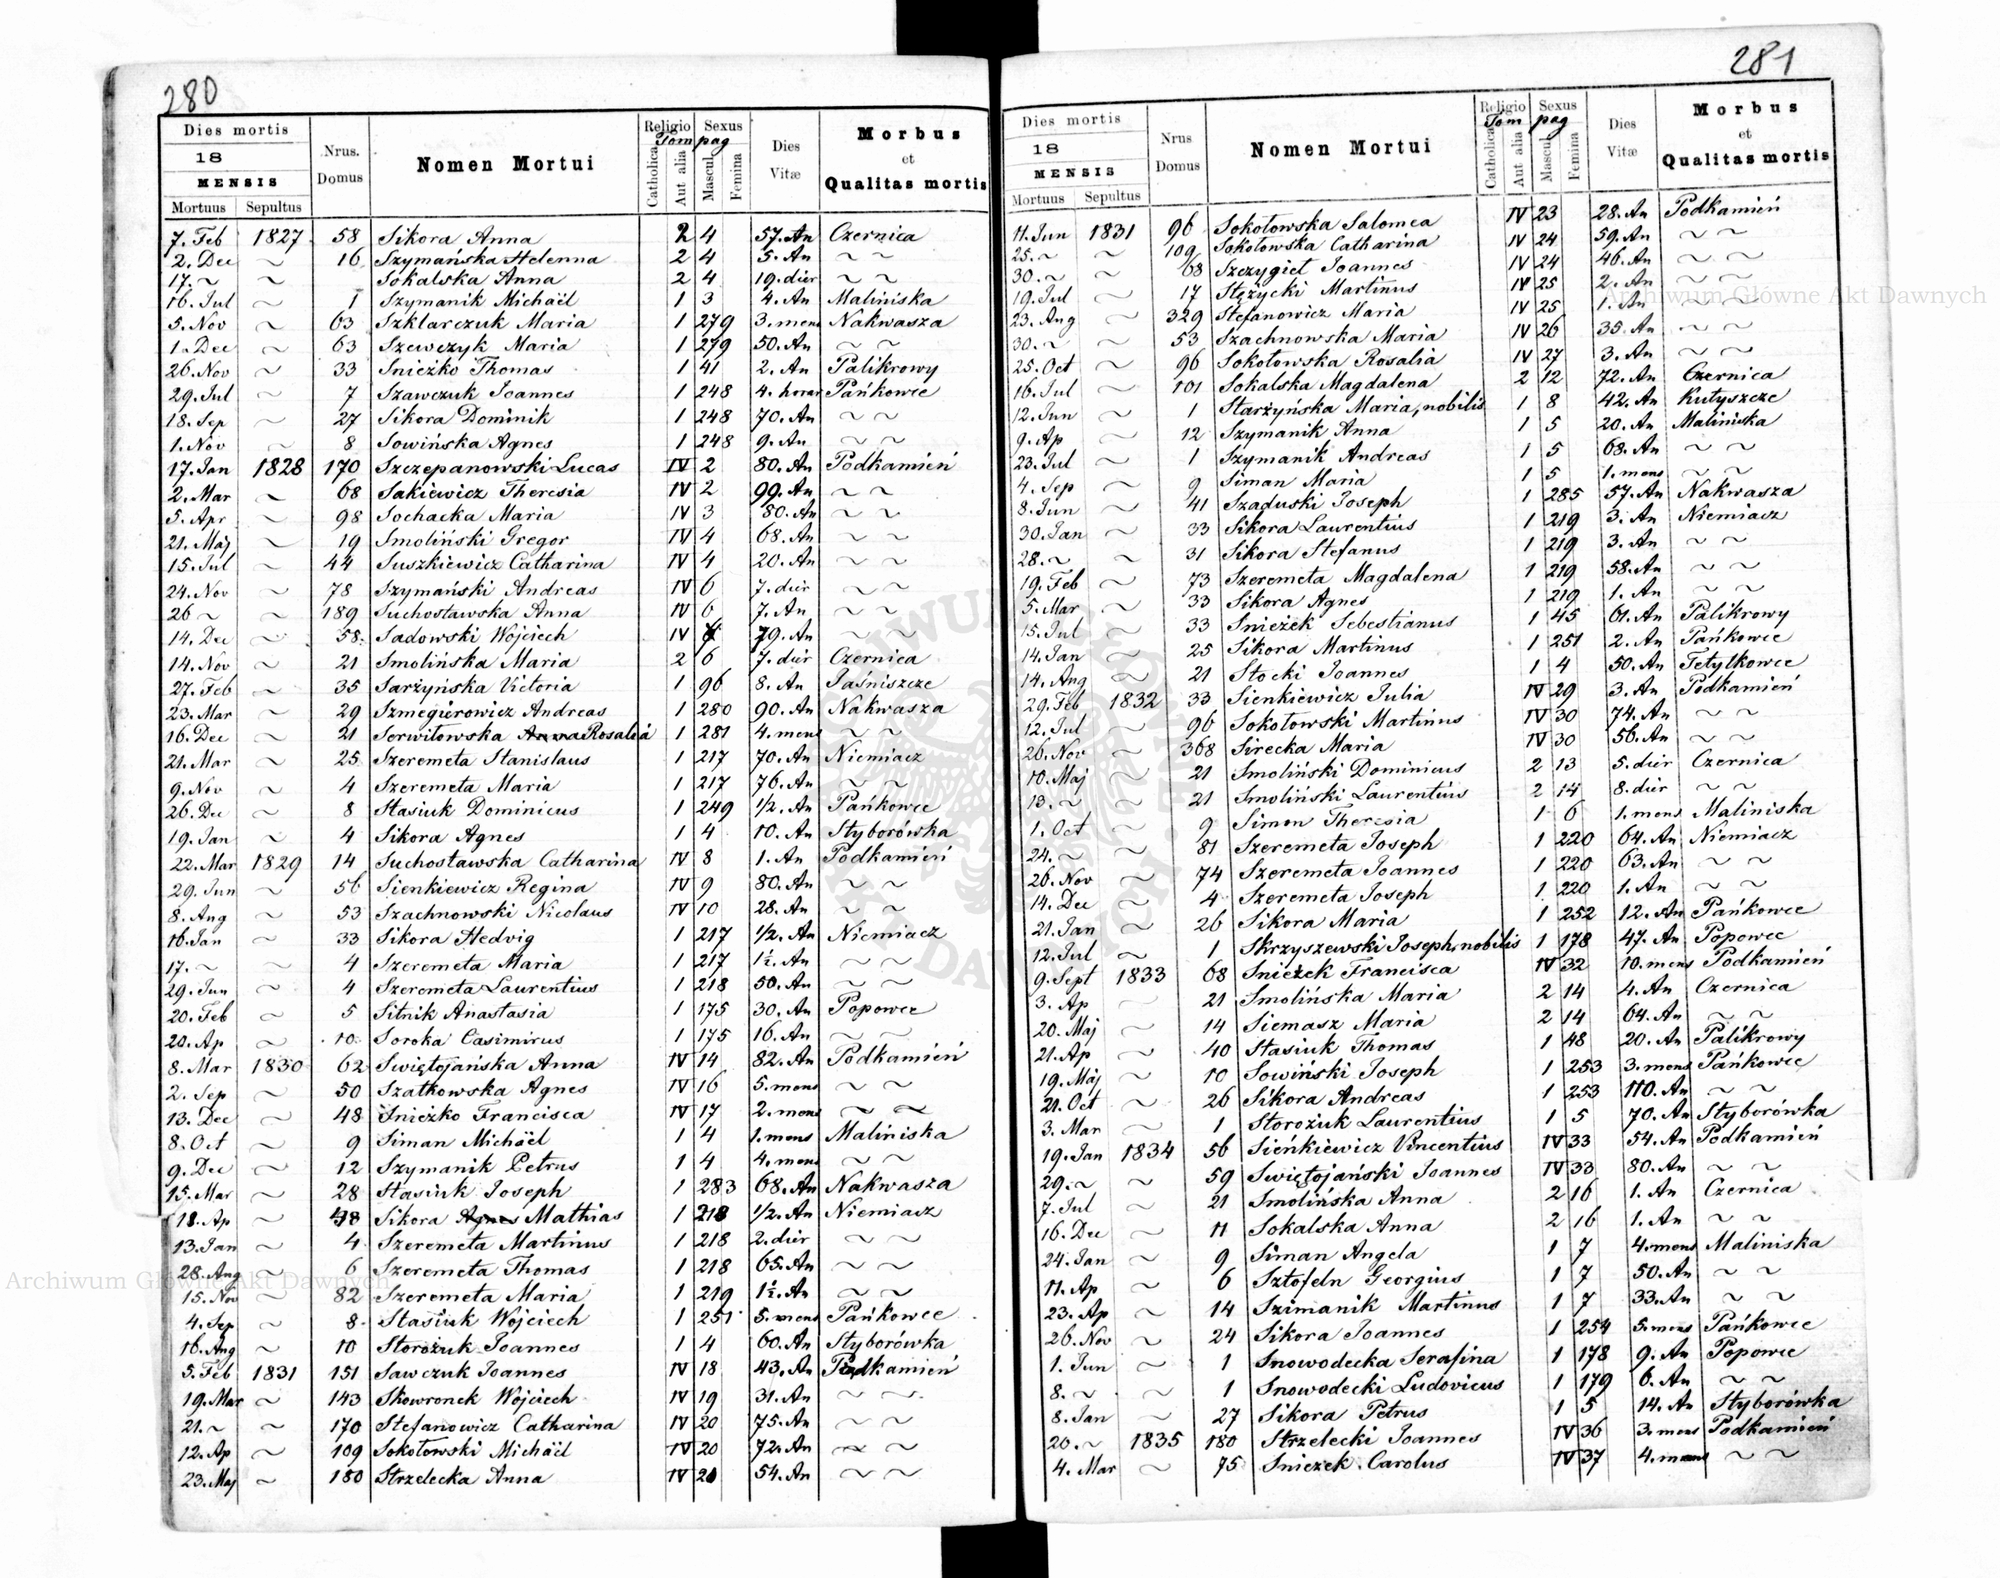 280
Dies mortis Nrus. Domus Nomen Mortui Religio Sexus Dies Vitæ Morbus et Qualitas mortis
18 Tom pag
MENSIS Catholica Aut alia Mascul. Femina
Mortuus Sepultus
7. Feb 1827 58 Sikora Anna 2 4 57. An Czernica
2. Dec ~ 16 Szymańska Helenna 2 4 5. An ~ ~
17. ~ ~ Sokalska Anna 2 4 19. dier ~ ~
16. Jul ~ 1 Szymanik Michaël 1 3 4. An Maliniska
5. Nov ~ 63 Szklarczuk Maria 1 279 3. mens Nakwasza
1. Dec ~ 63 Szewczyk Maria 1 279 50. An ~ ~
26. Nov ~ 33 Snieżko Thomas 1 41 2. An Palikrowy
29. Jul ~ 7 Szawczuk Joannes 1 248 4. horar Pańkowce
18. Sep ~ 27 Sikora Dominik 1 248 70. An ~ ~
1. Nov ~ 8 Sowińska Agnes 1 248 9. An ~ ~
17. Jan 1828 170 Szczepanowski Lucas IV 2 80. An Podkamień
2. Mar ~ 68 Sakiewicz Theresia IV 2 99. An ~ ~
5. Apr ~ 98 Sochacka Maria IV 3 80. An ~ ~
21. Maj ~ 19 Smoliński Gregor IV 4 68. An ~ ~
15. Jul ~ 44 Suszkiewicz Catharina IV 4 20. An ~ ~
24. Nov ~ 78 Szymański Andreas IV 6 7. dier ~ ~
26 ~ ~ 189 Suchostawska Anna IV 6 7. An ~ ~
14. Dec ~ 58 Sadowski Wojciech IV 79. An ~ ~
14. Nov ~ 21 Smolińska Maria 2 6 7. dier Czernica
27. Feb ~ 35 Sarżyńska Victoria 1 96 8. An Jaśniszcze
23. Mar ~ 29 Szmegierowicz Andreas 1 280 90. An Nakwasza
16. Dec ~ 21 Serwitowska Anna Rosalia 1 281 4. mens ~ ~
21. Mar ~ 25 Szeremeta Stanislaus 1 217 70. An Niemiacz
9. Nov ~ 4 Szeremeta Maria 1 217 76. An ~ ~
26. Dec ~ 8 Stasiuk Dominicus 1 249 1/2. An Pańkowce
19. Jan ~ 4 Sikora Agnes 1 4 10. An Styborówka
22. Mar 1829 14 Suchostawska Catharina IV 8 1. An Podkamień
29. Jun ~ 56 Sienkiewicz Regina IV 9 80. An ~ ~
8. Aug ~ 53 Szachnowski Nicolaus IV 10 28. An ~ ~
16. Jan ~ 33 Sikora Hedvig 1 217 1/2. An Niemiacz
17. ~ ~ 4 Szeremeta Maria 1 217 1½. An ~ ~
29. Jun ~ 4 Szeremeta Laurentius 1 218 50. An ~ ~
20. Feb ~ 5 Sitnik Anastasia 1 175 30. An Popowce
20. Ap ~ 10 Soroka Casimirus 1 175 16. An ~ ~
8. Mar 1830 62 Swiętojańska Anna IV 14 82. An Podkamień
2. Sep ~ 50 Szatkowska Agnes IV 16 5. mens ~ ~
13. Dec ~ 48 Snieżko Francisca IV 17 2. mens ~ ~
8. Oct ~ 9 Siman Michaël 1 4 1. mens Maliniska
9. Dec ~ 12 Szymanik Petrus 1 4 4. mens ~ ~
15. Mar ~ 28 Stasiuk Joseph 1 283 68. An Nakwasza
18. Ap ~ Sikora Agnes Mathias 1 218 1/2. An Niemiacz
13. Jan ~ 4 Szeremeta Martinus 1 218 2. dier ~ ~
28. Aug ~ 6 Szeremeta Thomas 1 218 65. An ~ ~
15. Nov ~ 82 Szeremeta Maria 1 219 1½. An ~ ~
4. Sep ~ 8 Stasiuk Wojciech 1 251 5. mens Pańkowce
16. Aug ~ 10 Storożuk Joannes 1 4 60. An Styborówka
5. Feb 1831 151 Sawczuk Joannes IV 18 43. An Podkamień
19. Mar ~ 143 Skowronek Wojciech IV 19 31. An ~ ~
21. ~ ~ 170 Stefanowicz Catharina IV 20 75. An ~ ~
12. Ap ~ 109 Sokołowski Michaël IV 20 72. An ~ ~
23. Maj ~ 180 Strzelecka Anna IV 54. An ~ ~
281
Dies mortis Nrus Domus Nomen Mortui Religio Sexus Dies Vitæ Morbus et Qualitas mortis
18 Tom pag
MENSIS Catholica Aut alia Mascul. Femina
Mortuus Sepultus
11. Jun 1831 96 Sokołowska Salomea IV 23 28. An Podkamień
25. ~ ~ 109 Sokołowska Catharina IV 24 59. An ~ ~
30. ~ ~ 68 Szczygieł Joannes IV 24 46. An ~ ~
19. Jul ~ 17 Stężycki Martinus IV 25 2. An ~ ~
23. Aug ~ 329 Stefanowicz Maria IV 25 1. An ~ ~
30. ~ ~ 53 Szachnowska Maria IV 26 35. An ~ ~
25. Oct ~ 96 Sokołowska Rosalia IV 27 3. An ~ ~
16. Jul ~ 101 Sokalska Magdalena 2 12 72. An Czernica
12. Jun ~ 1 Starżyńska Maria, nobilis 1 8 42. An Kutyszcze
9. Ap ~ 12 Szymanik Anna 1 5 20. An Maliniska
23. Jul ~ 1 Szymanik Andreas 1 5 68. An ~ ~
4. Sep ~ 9 Siman Maria 1 5 1. mens ~ ~
8. Jun ~ 41 Szaduski Joseph 1 285 57. An Nakwasza
30. Jan ~ 33 Sikora Laurentius 1 219 3. An Niemiacz
28. ~ ~ 31 Sikora Stefanus 1 219 3. An ~ ~
19. Feb ~ 73 Szeremeta Magdalena 1 219 58. An ~ ~
5. Mar ~ 33 Sikora Agnes 1 219 1. An ~ ~
15. Jul ~ 33 Snieżek Sebestianus 1 45 61. An Palikrowy
14. Jan ~ 25 Sikora Martinus 1 251 2. An Pańkowce
14. Aug ~ 21 Stocki Joannes 1 4 50. An Tetylkowce
29. Feb 1832 33 Sienkiewicz Julia IV 29 3. An Podkamień
12. Jul ~ 96 Sokołowski Martinus IV 30 74. An ~ ~
26. Nov ~ 368 Sirecka Maria IV 30 56. An ~ ~
10. Maj ~ 21 Smoliński Dominicus 2 13 5. dier Czernica
13. ~ ~ 21 Smoliński Laurentius 2 14 8. dier ~ ~
1. Oct ~ 9 Simon Theresia 1 6 1. mens Maliniska
24. ~ ~ 81 Szeremeta Joseph 1 220 64. An Niemiacz
26. Nov ~ 74 Szeremeta Joannes 1 220 63. An ~ ~
14. Dec ~ 4 Szeremeta Joseph 1 220 1. An ~ ~
21. Jan ~ 26 Sikora Maria 1 252 12. An Pańkowce
12. Jul ~ 1 Skrzyszewski Joseph, nobilis 1 178 47. An Popowce
9. Sept 1833 68 Snieżek Francisca IV 32 10. mens Podkamień
3. Ap ~ 21 Smolińska Maria 2 14 4. An Czernica
20. Maj ~ 14 Siemasz Maria 2 14 64. An ~ ~
21. Ap ~ 40 Stasiuk Thomas 1 48 20. An Palikrowy
19. Maj ~ 10 Sowiński Joseph 1 253 3. mens Pańkowce
21. Oct ~ 26 Sikora Andreas 1 253 110. An ~ ~
3. Mar ~ 1 Storożuk Laurentius 1 5 70. An Styborówka
19. Jan 1834 56 Sieńkiewicz Vincentius IV 33 54. An Podkamień
29. ~ ~ 59 Swiętojański Joannes IV 33 80. An ~ ~
7. Jul ~ 21 Smolińska Anna 2 16 1. An Czernica
16. Dec ~ 11 Sokalska Anna 2 16 1. An ~ ~
24. Jan ~ 9 Siman Angela 1 7 4. mens Maliniska
11. Ap ~ 6 Sztofeln Georgius 1 7 50. An ~ ~
23. Ap ~ 14 Szimanik Martinus 1 7 33. An ~ ~
26. Nov ~ 24 Sikora Joannes 1 254 5. mens Pańkowce
1. Jun ~ 1 Snowodecka Serafina 1 178 9. An Popowce
8. ~ ~ 1 Snowodecki Ludovicus 1 179 6. An ~ ~
8. Jan ~ 27 Sikora Petrus 1 5 14. An Styborówka
20. ~ 1835 180 Strzelecki Joannes IV 36 3. mens Podkamień
4. Mar ~ 75 Snieżek Carolus IV 37 4. mens ~ ~
Archiwum Główne Akt Dawnych
Archiwum Główne Akt Dawnych